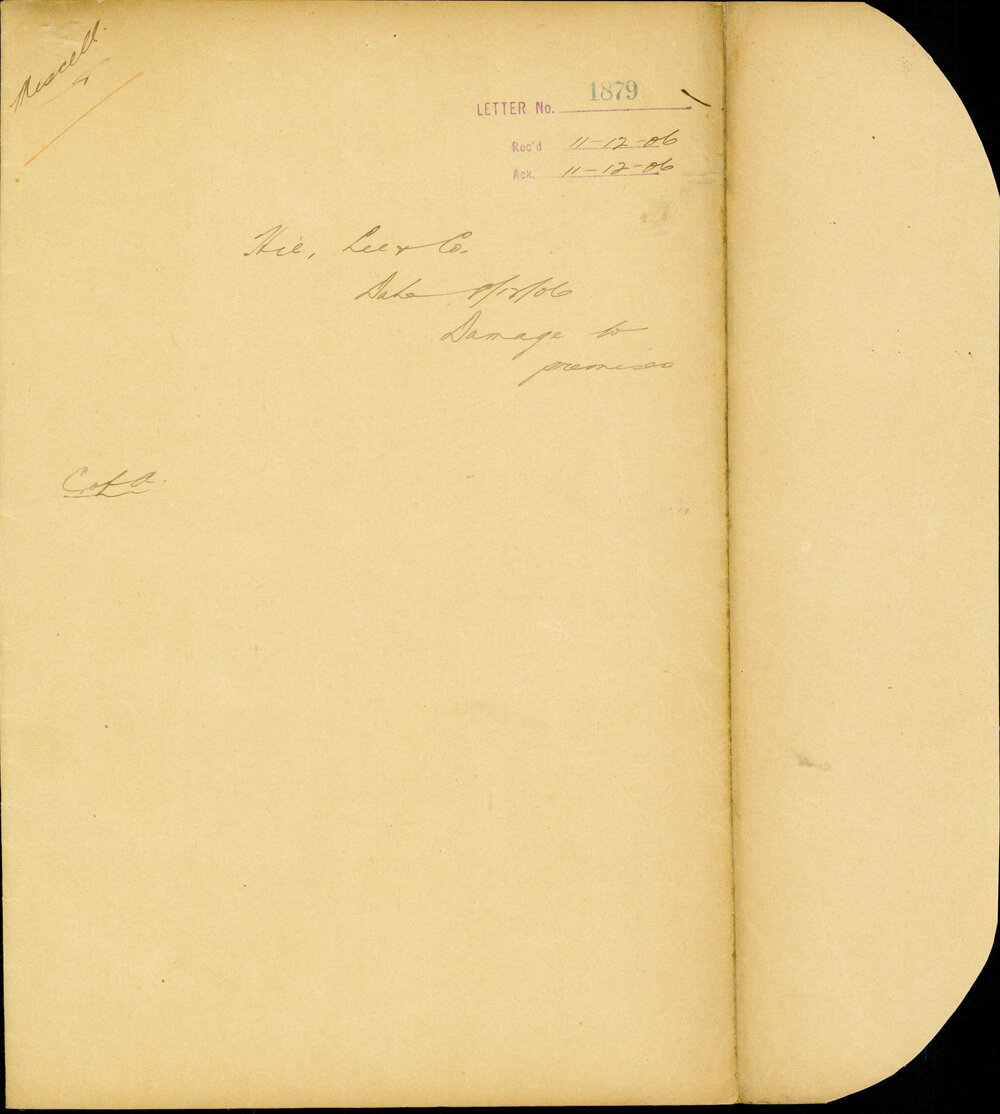 Miscell.
LETTER No. 1879
Rec'd 11-12-06
Ack. 11-12-06
Hie, Lee & Co.
Date 8/12/06
Damage to
premises
C of A.